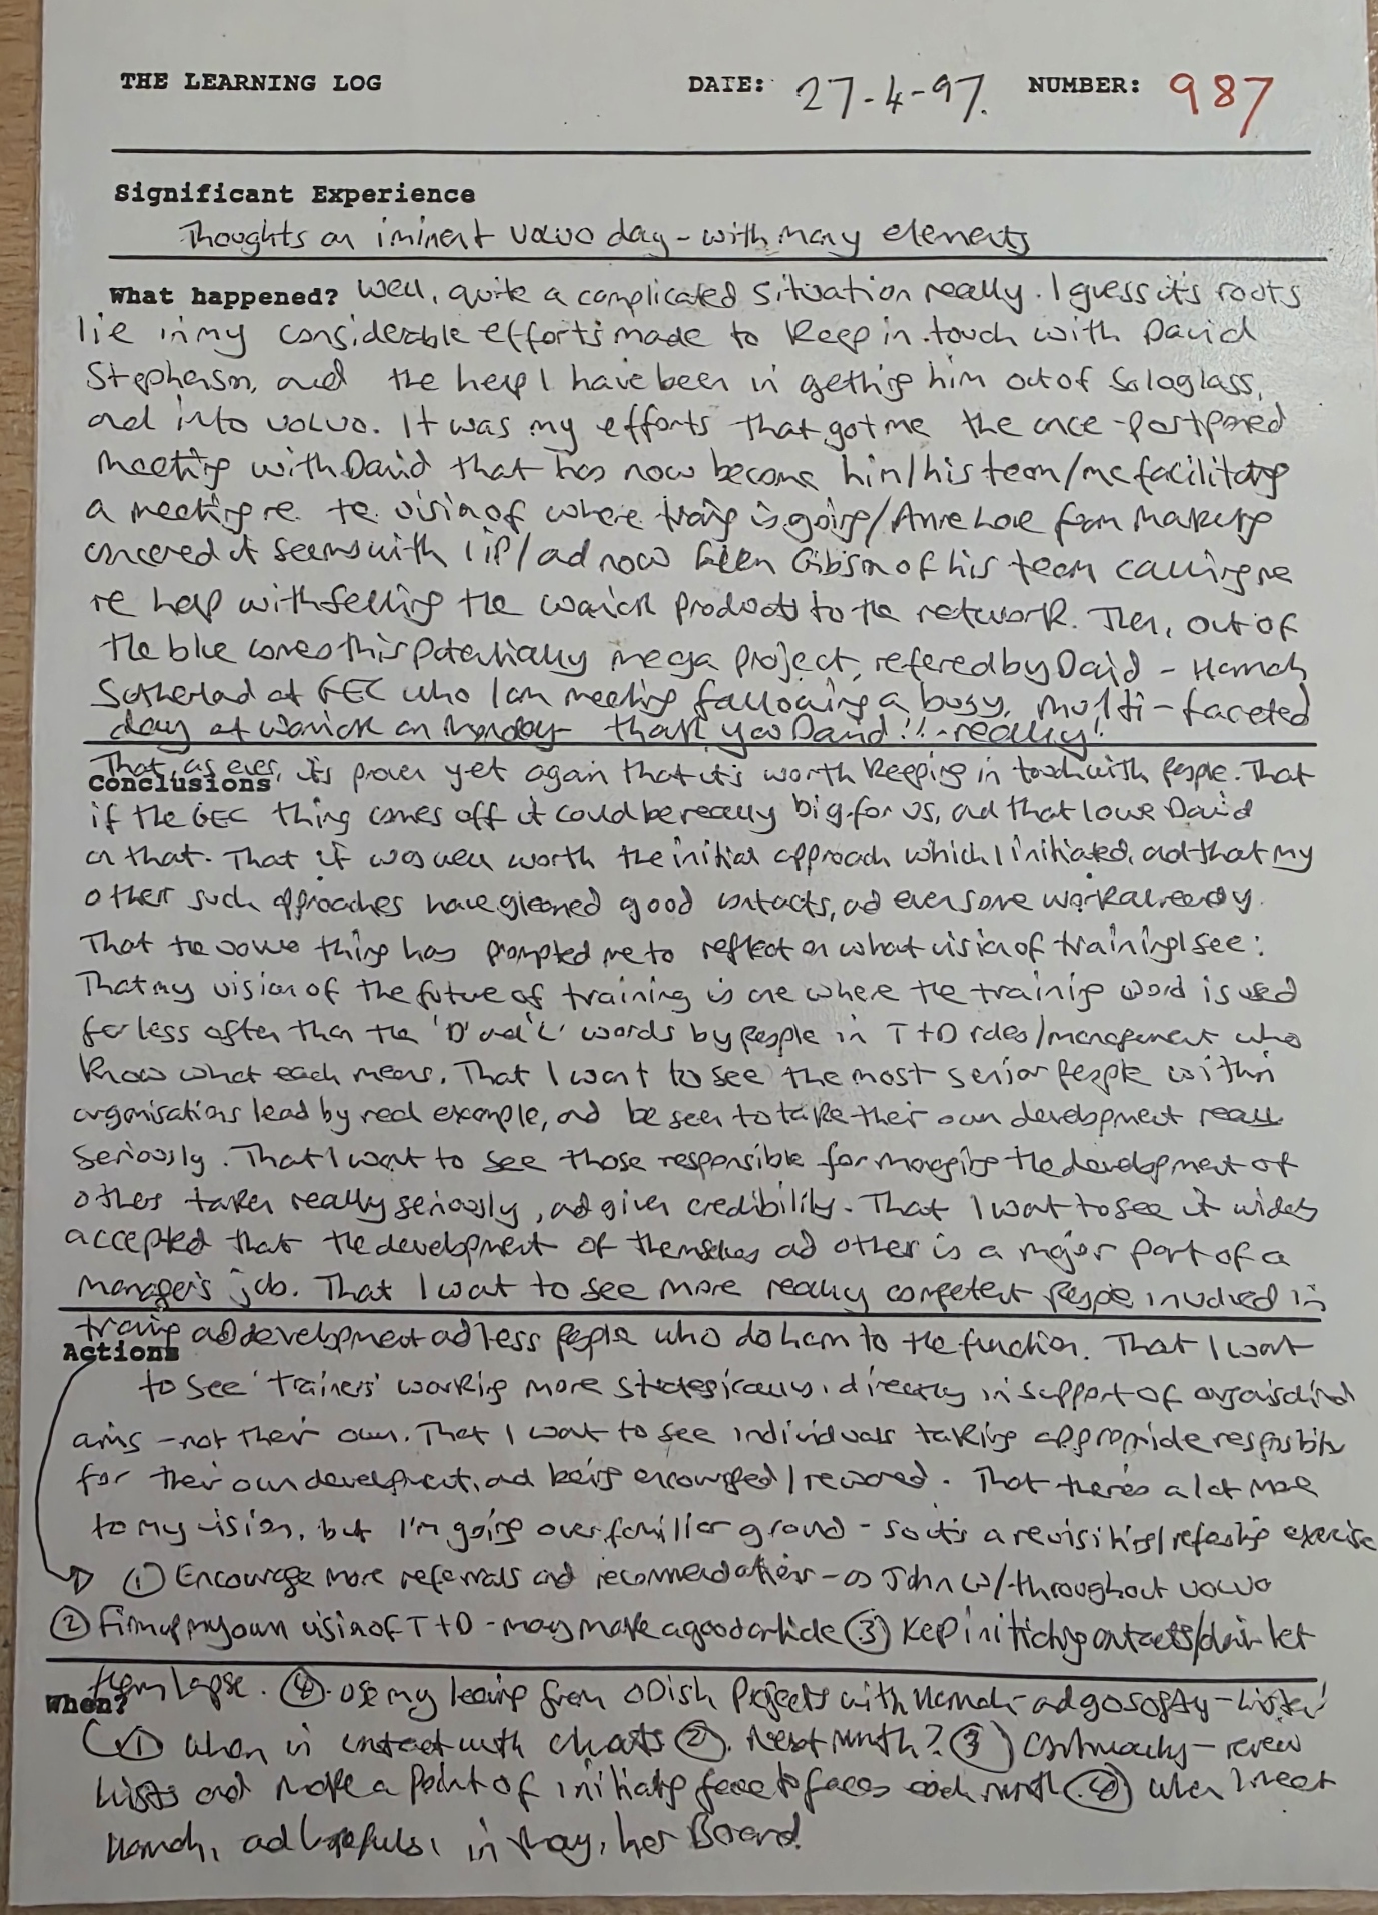 THE LEARNING LOG DATE: 27-4-97. NUMBER: 987
Significant Experience
Thoughts on iminent Volvo day - with many elements
What happened? Well, quite a complicated situation really. I guess it's roots
lie in my considerable efforts made to keep in touch with David
Stephenson, and the help I have been in getting him out of Solaglass,
and into Volvo. It was my efforts that got me the once-postponed
meeting with David that has now become him/his team/me facilitating
a meeting re the vision of where training is going/Anne Love from Marketing
concerned it seems with IIP/and now Gibson of his team calling me
re help with selling the Warwick products to the network. Then, out of
the blue comes this potentially mega project, refered by David - Hamah
Sutherland at GEC who I am meeting following a busy, multi-faceted
day at Warwick on Monday - thank you David!! - really!
Conclusions That, as ever, it's proven yet again that it's worth keeping in touch with people. That
if the GEC thing comes off it could be really big for us, and that I owe David
on that. That it was well worth the initial approach which I initiated, and that my
other such approaches have gleaned good contacts, and even some work already.
That the Volvo thing has prompted me to reflect on what vision of training I see:
That my vision of the future of training is one where the training word is used
far less often than the 'D' and 'L' words by people in T+D roles/management who
know what each means. That I want to see the most senior people within
organisations lead by real example, and be seen to take their own development really
seriously. That I want to see those responsible for managing the development of
others taken really seriously, and given credibility. That I want to see it widely
accepted that the development of themselves and other is a major part of a
manager's job. That I want to see more really competent people involved in
training and development and less people who do harm to the function. That I want
Actions
to see 'trainers' working more strategically, directly in support of organisational
aims - not their own. That I want to see individuals taking appropriate responsibility
for their own development, and being encouraged/rewared. That there's a lot more
to my vision, but I'm going over familiar ground - so it's a revisiting/refreshing exercise
① Encourage more referrals and recommendations - as John W/throughout Volvo
② Firm up my own vision of T+D - may make a good article ③ Keep initiating contacts/don't let
them lapse. ④. Use my learning from Odish Projects with Hamah - and go softly - listen!
When?
① When in contact with clients ②. Next month? ③ Continuously - review
lists and make a point of initiating face to faces each month ④ When I meet
Hamah, and hopefully, in May, her Board.